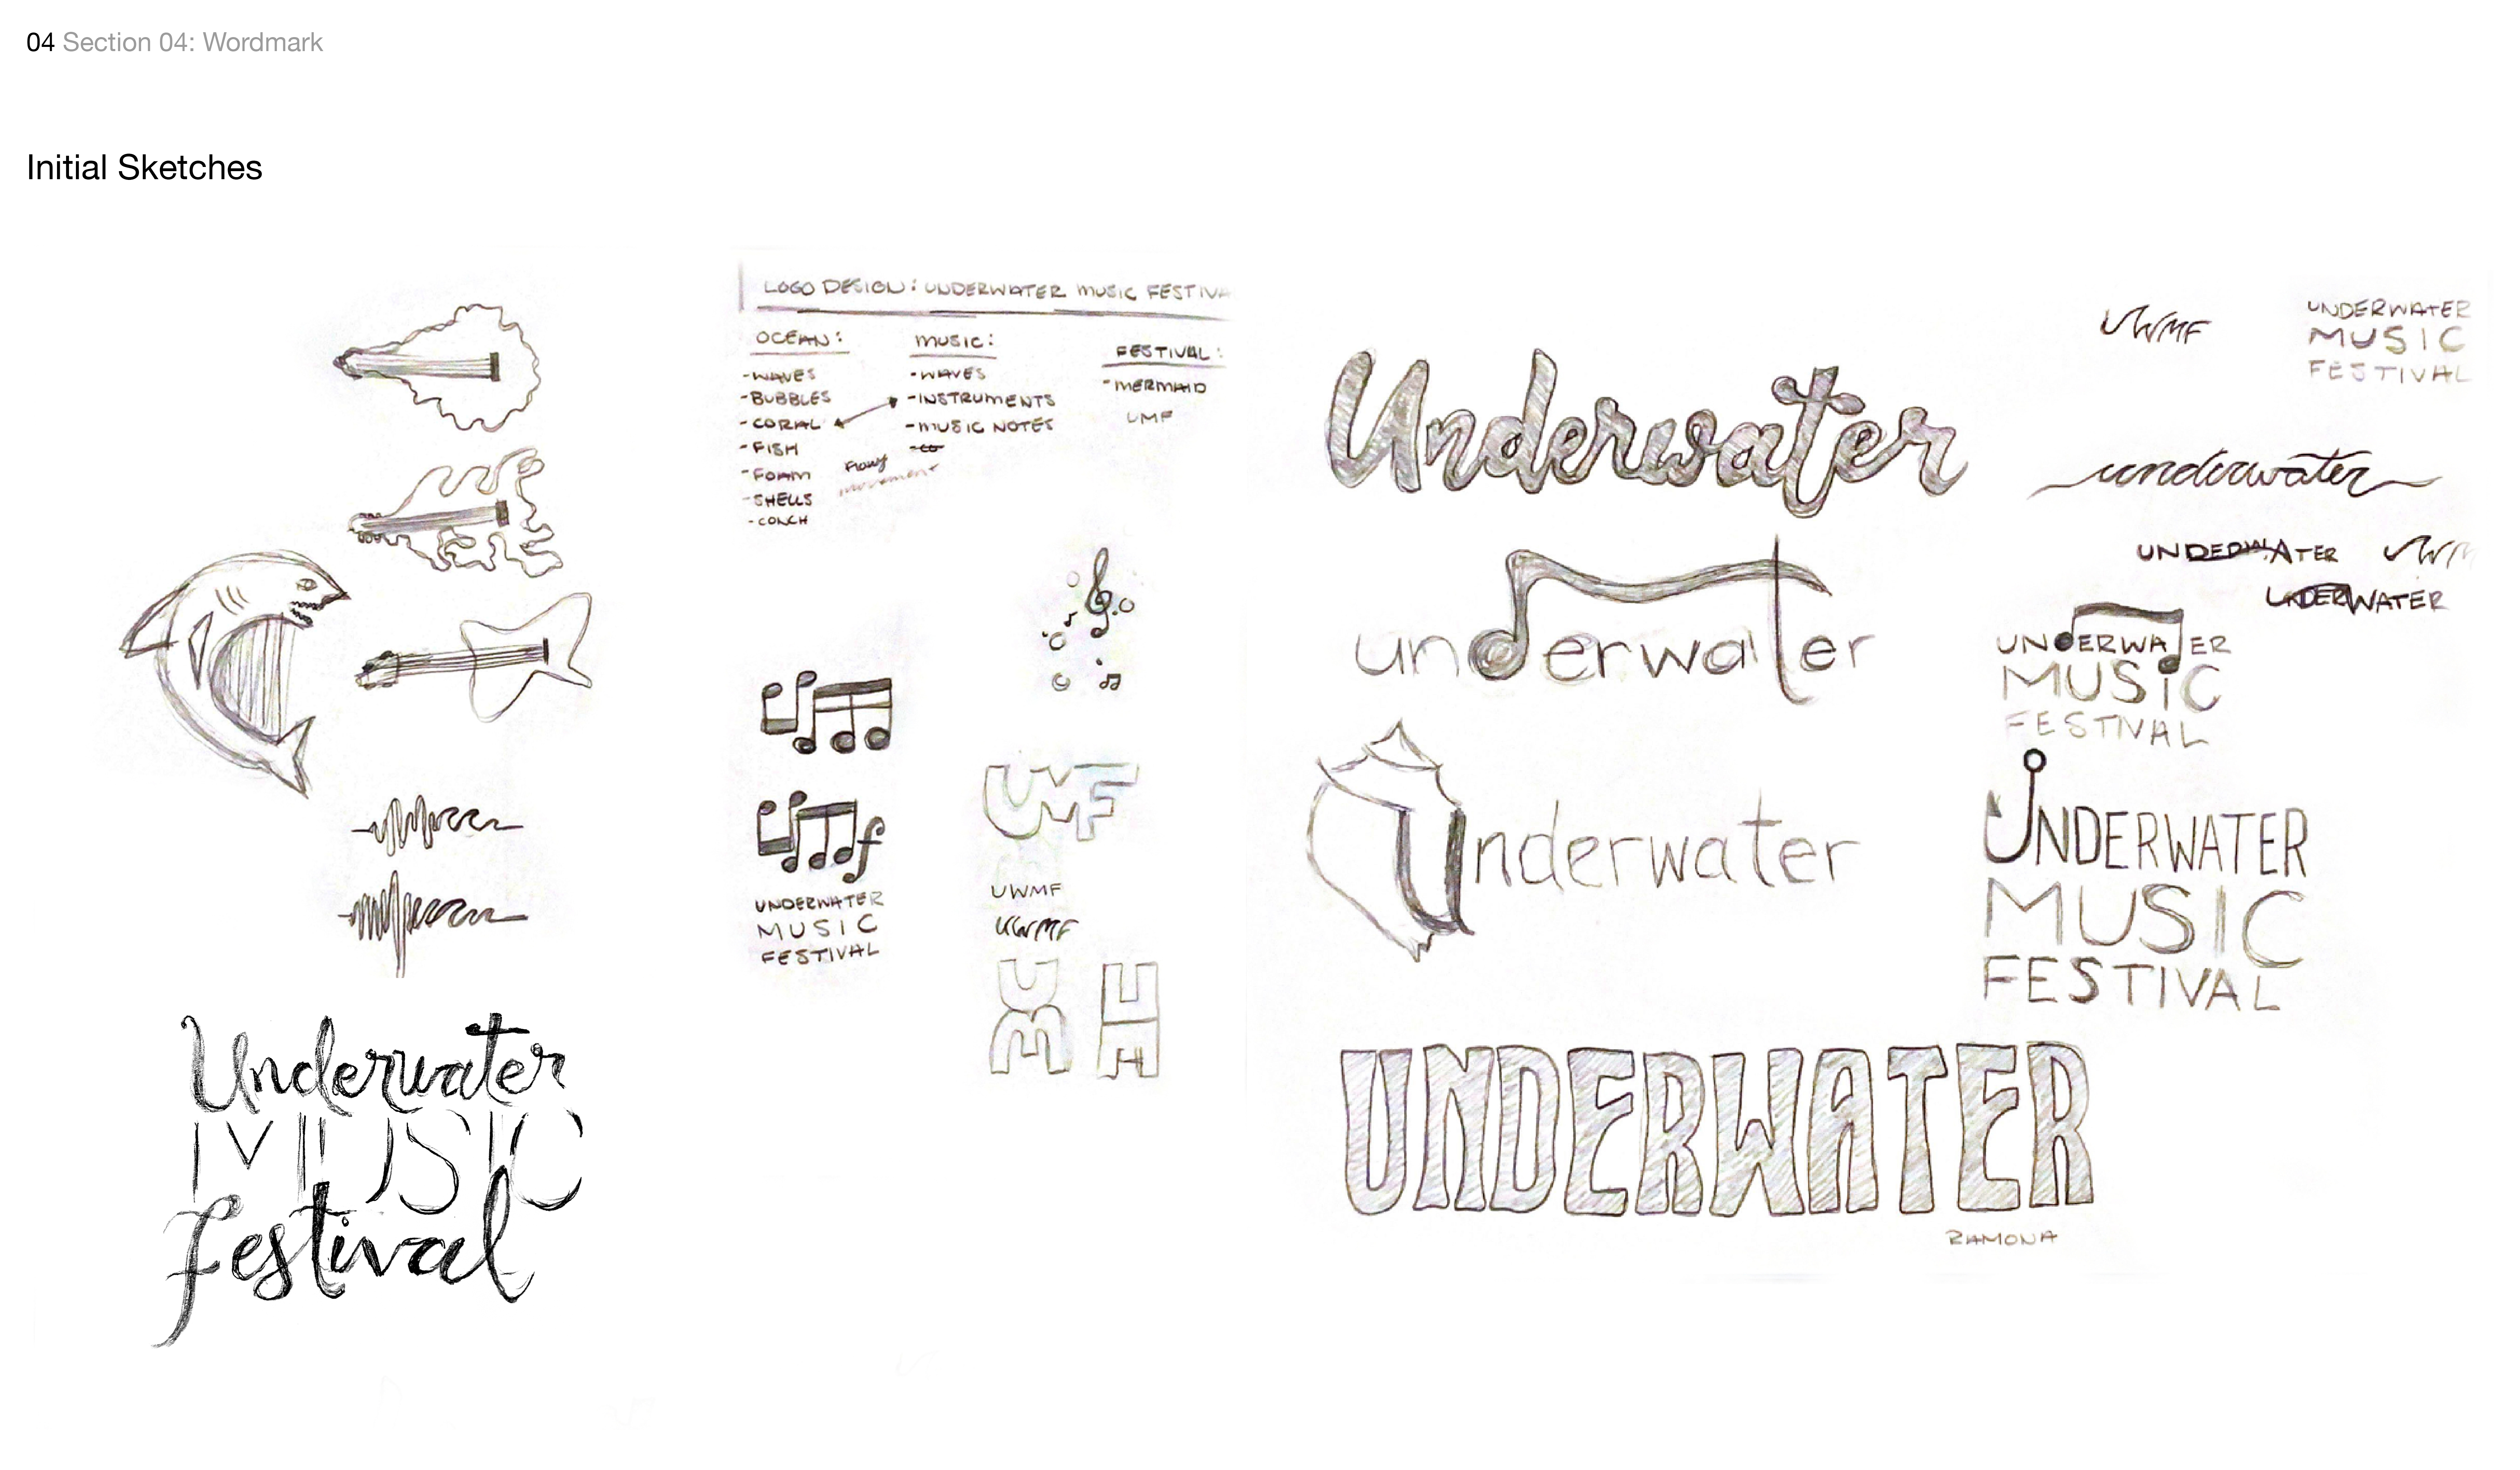 04 Section 04: Wordmark
Initial Sketches
LOGO DESIGN: UNDERWATER MUSIC FESTIVA
OCEAN:
-WAVES
-BUBBLES
-CORAL
-FISH
-FOAM
-SHELLS
-CONCH
MUSIC:
-WAVES
-INSTRUMENTS
-MUSIC NOTES
FLOWY
movement
FESTIVAL:
-MERMAID
UMF
UNDERWATER
MUSIC
FESTIVAL
UMF
UWMF
UWMF
Underwater
MUSIC
festival
Underwater
underwater
Underwater
UNDERWATER
RAMONA
UWMF
UNDERWATER
MUSIC
FESTIVAL
underwater
UNDERWATER
UWM
UNDERWATER
UNDERWATER
MUSIC
FESTIVAL
UNDERWATER
MUSIC
FESTIVAL